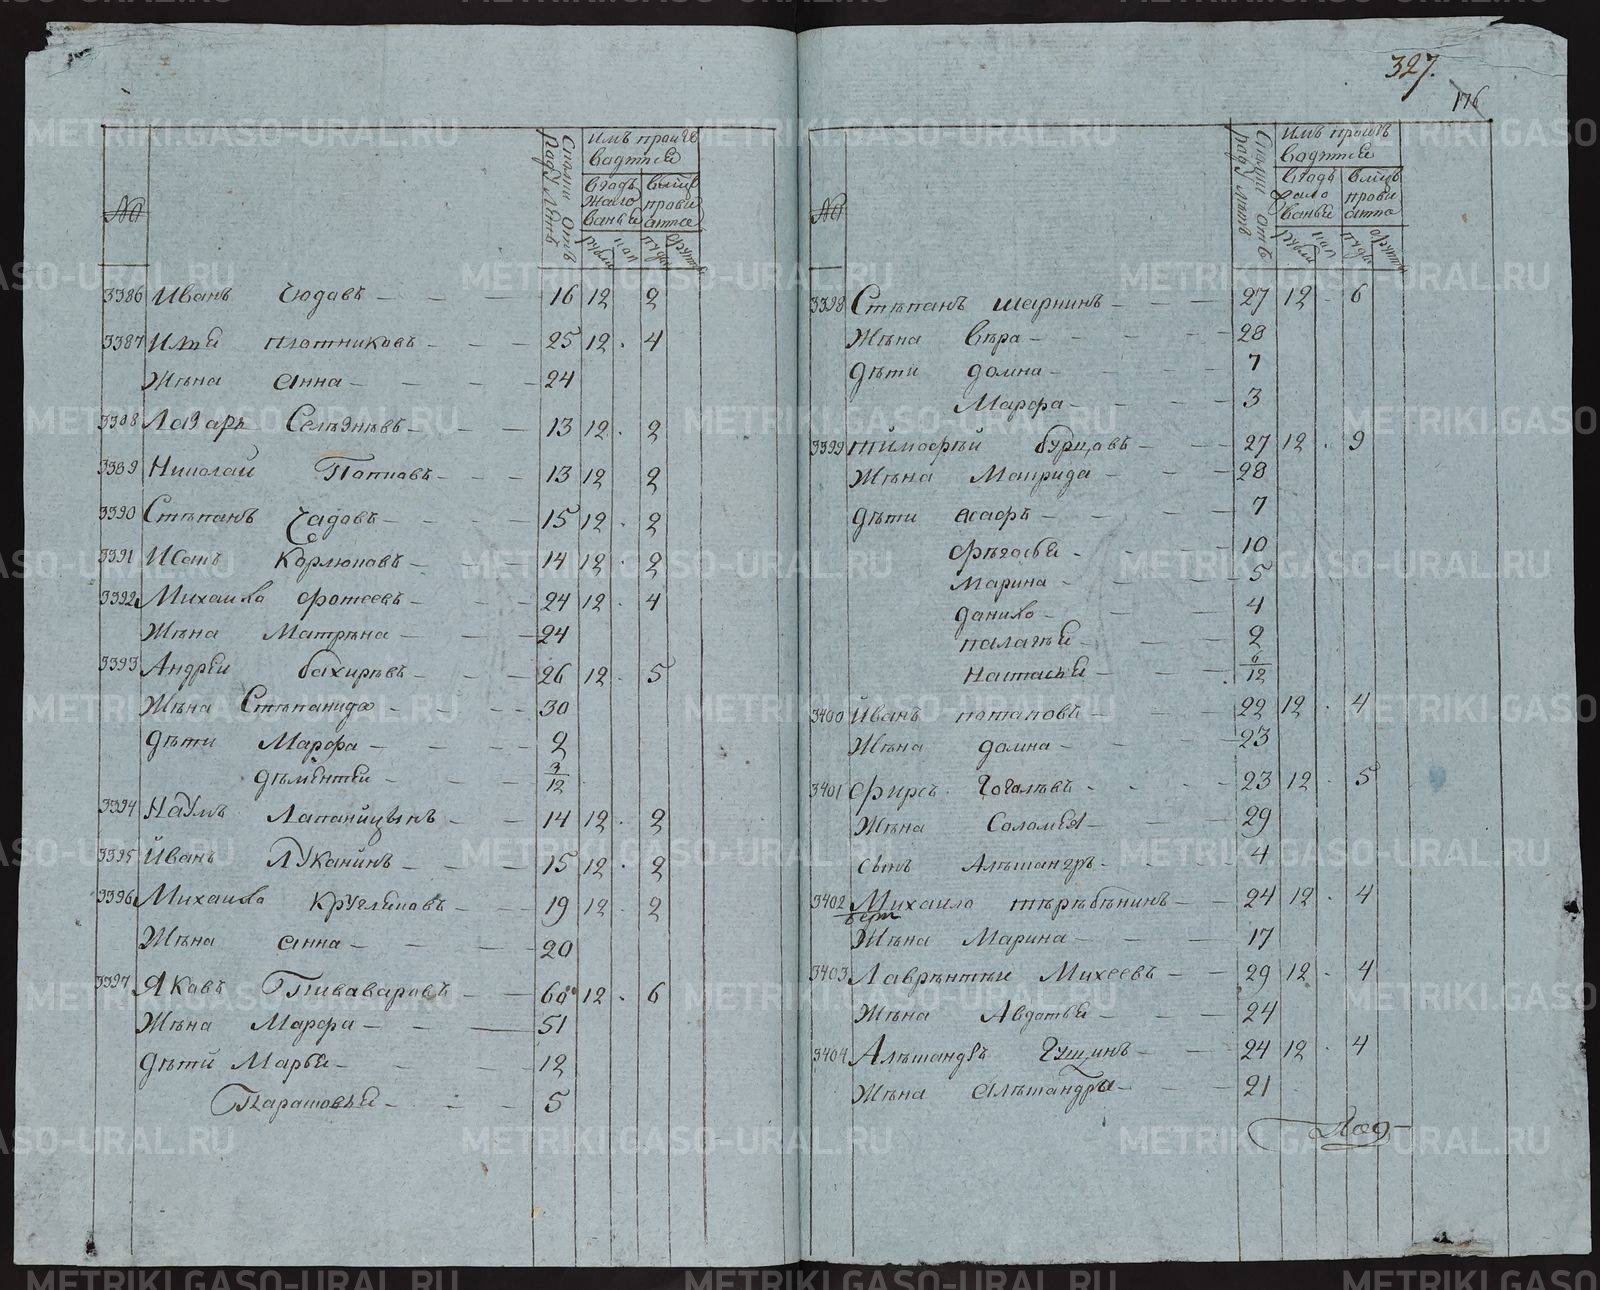 №
Сколко отъ роду летъ
имъ произ
водится
вгодъ жало ванья
вмцъ прови анта
рубли
коп
пуды
фунты
3386 Иванъ Чюдавъ 16 12 2
3387 Илья плотниковъ 25 12 4
Жѣна Анна 24
3388 Лазарь Селѣзнѣвъ 13 12 2
3389 Николай 13 12 2
3390 Стѣпанъ Чадовъ 15 12 2
3391 Корлюковъ 14 12 2
3392 Михаило фотеевъ 24 12 4
Жѣна Матрѣна 24
3393 Андрѣй бахирѣвъ 26 12 5
Жѣна Стѣпанида 30
дѣти Марфа 2
дѣмѣнтѣй 3/12
3394 Наумъ Лапаницынъ 14 12 2
3395 Иванъ Луканинъ 15 12 2
3396 Михаило Кругликовъ 19 12 2
Жѣна Анна 20
3397 Яковъ Пиваваровъ 60 12 6
Жѣна Марфа 51
дѣти Марья 12
Парасковья 5
327.
176
№
Сколко отъ роду летъ
имъ произ
водится
вгодъ жало ванья
вмцъ прови анта
рубли
коп
пуды
фунты
3398 Стѣпанъ шарнинъ 27 12 6
Жѣна вѣра 28
дѣти домна 7
Марфа 3
3399 тимофѣй бурцовъ 27 12 9
Жѣна Макрида 28
дѣти асафъ 7
фѣдосья 10
Марина 5
данило 4
палагѣя 2
Настасья 6/12
3400 Иванъ потаповъ 22 12 4
Жѣна домна 23
3401 фирсъ Гогалѣвъ 23 12 5
Жѣна Соломѣя 29
сынъ Алѣксандръ 4
3402 Михаило тѣрѣбѣнинъ 24 12 4
берг
Жѣна Марина 17
3403 Лаврѣнтѣй Михеевъ 29 12 4
Жѣна Авдотья 24
3404 Алѣксандръ Гущинъ 24 12 4
Жѣна Алѣксандра 21
METRIKI.GASO-URAL.RU